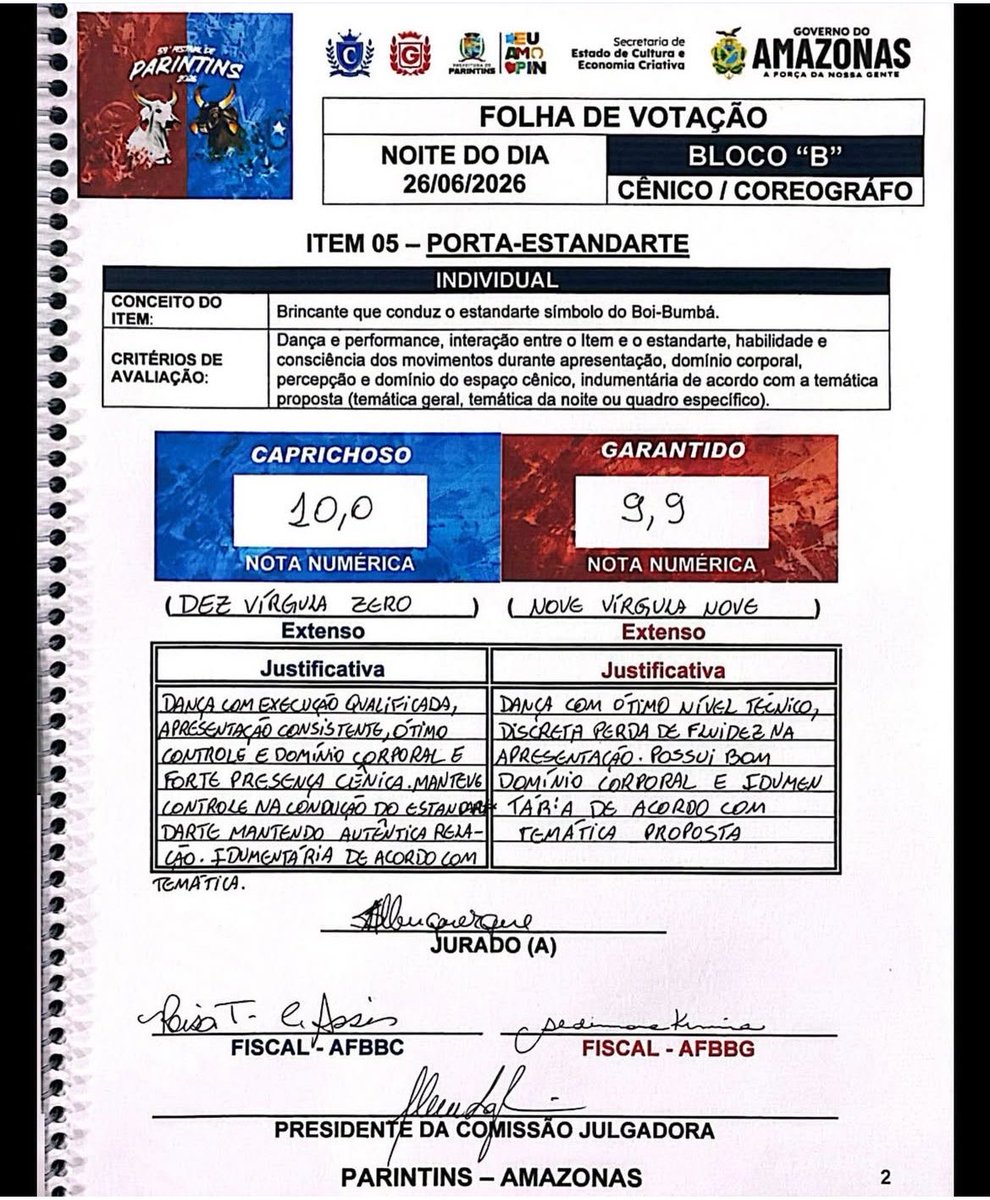 59º FESTIVAL DE
PARINTINS
2026
C
G
PREFEITURA DE
PARINTINS
EU
AMO
PIN
Secretaria de
Estado de Cultura e
Economia Criativa
GOVERNO DO
AMAZONAS
A FORÇA DA NOSSA GENTE
FOLHA DE VOTAÇÃO
NOITE DO DIA
26/06/2026
BLOCO “B”
CÊNICO / COREOGRÁFO
ITEM 05 – PORTA-ESTANDARTE
INDIVIDUAL
CONCEITO DO
ITEM:
Brincante que conduz o estandarte símbolo do Boi-Bumbá.
CRITÉRIOS DE
AVALIAÇÃO:
Dança e performance, interação entre o Item e o estandarte, habilidade e
consciência dos movimentos durante apresentação, domínio corporal,
percepção e domínio do espaço cênico, indumentária de acordo com a temática
proposta (temática geral, temática da noite ou quadro específico).
CAPRICHOSO
10,0
NOTA NUMÉRICA
(DEZ VÍRGULA ZERO)
Extenso
GARANTIDO
9,9
NOTA NUMÉRICA
(NOVE VÍRGULA NOVE)
Extenso
Justificativa
DANÇA COM EXECUÇÃO QUALIFICADA,
APRESENTAÇÃO CONSISTENTE, ÓTIMO
CONTROLE E DOMÍNIO CORPORAL E
FORTE PRESENÇA CÊNICA. MANTEVE
CONTROLE NA CONDUÇÃO DO ESTAN
DARTE MANTENDO AUTÊNTICA RELA-
ÇÃO. IDUMENTÁRIA DE ACORDO COM
TEMÁTICA.
Justificativa
DANÇA COM ÓTIMO NÍVEL TÉCNICO,
DISCRETA PERDA DE FLUIDEZ NA
APRESENTAÇÃO. POSSUI BOM
DOMÍNIO CORPORAL E IDUMEN
TÁRIA DE ACORDO COM
TEMÁTICA PROPOSTA
Albuquerque
JURADO (A)
FISCAL - AFBBC
FISCAL - AFBBG
PRESIDENTE DA COMISSÃO JULGADORA
PARINTINS – AMAZONAS
2